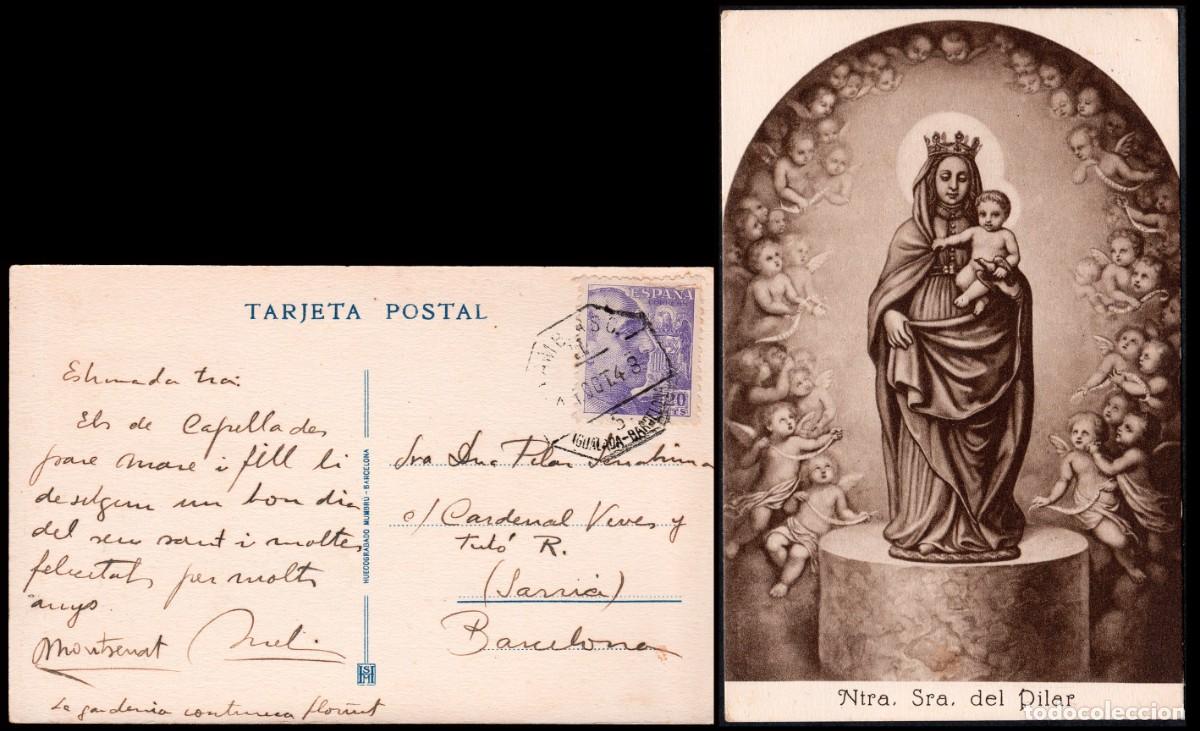 TARJETA POSTAL
ESPAÑA
CORREOS
20
CTS
OCT 48
IGUALADA-BARCELONA
Estimada tia:
Els de Capellades
pare mare i fill li
desitgem un bon dia
del seu sant i moltes
felicitats per molts
anys.
Montserrat
La gardenia continua florint
HUECOGRABADO MUMBRÚ - BARCELONA
Sra Dna Pilar
c/ Cardenal Vives y
Tutó R.
(Sarriá)
Barcelona
Ntra. Sra. del Pilar
todocoleccion